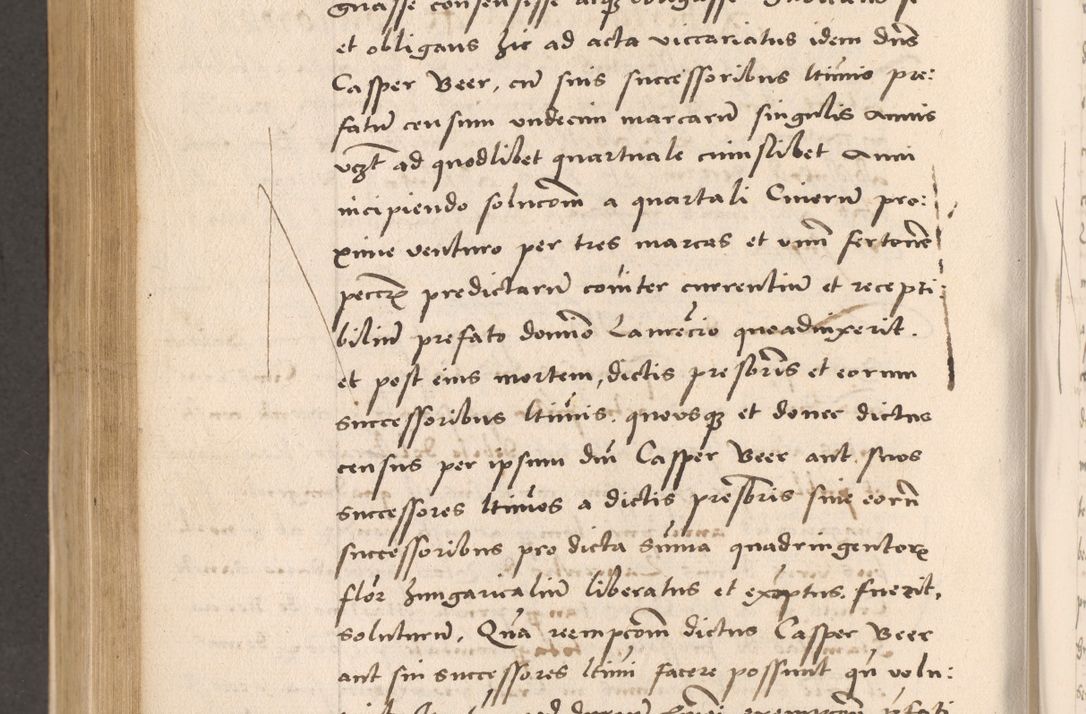 et obligans hic ad acta viccariatus idem dns
Casper Beer, cu suis successoribus ltimis pre:
fatu censum undecim marcaru singulis Annis
vczt ad quodlibet quartuale cuiuslibet Anni
incipiendo solucom a quartali Cineru pro:
xime venturo per tres marcas et unu fertone
peccr predictaru coiter currentiu et recepti:
biliu prefato domio quoadvixerit.
et post eius mortem, dictis presbris et eorum
successoribus ltimis. quousq et donec dictus
census per ipsum dm Casper Beer aut. suos
successores ltimos a dictis presbris sive eoru
successoribus pro dicta suma quadringentor
flor hungaricaliu liberatus et exemptus. fuerit,
soluturu, Qua reempcom dictus Casper Beer
aut sui successores ltimi facere possunt qn volu: